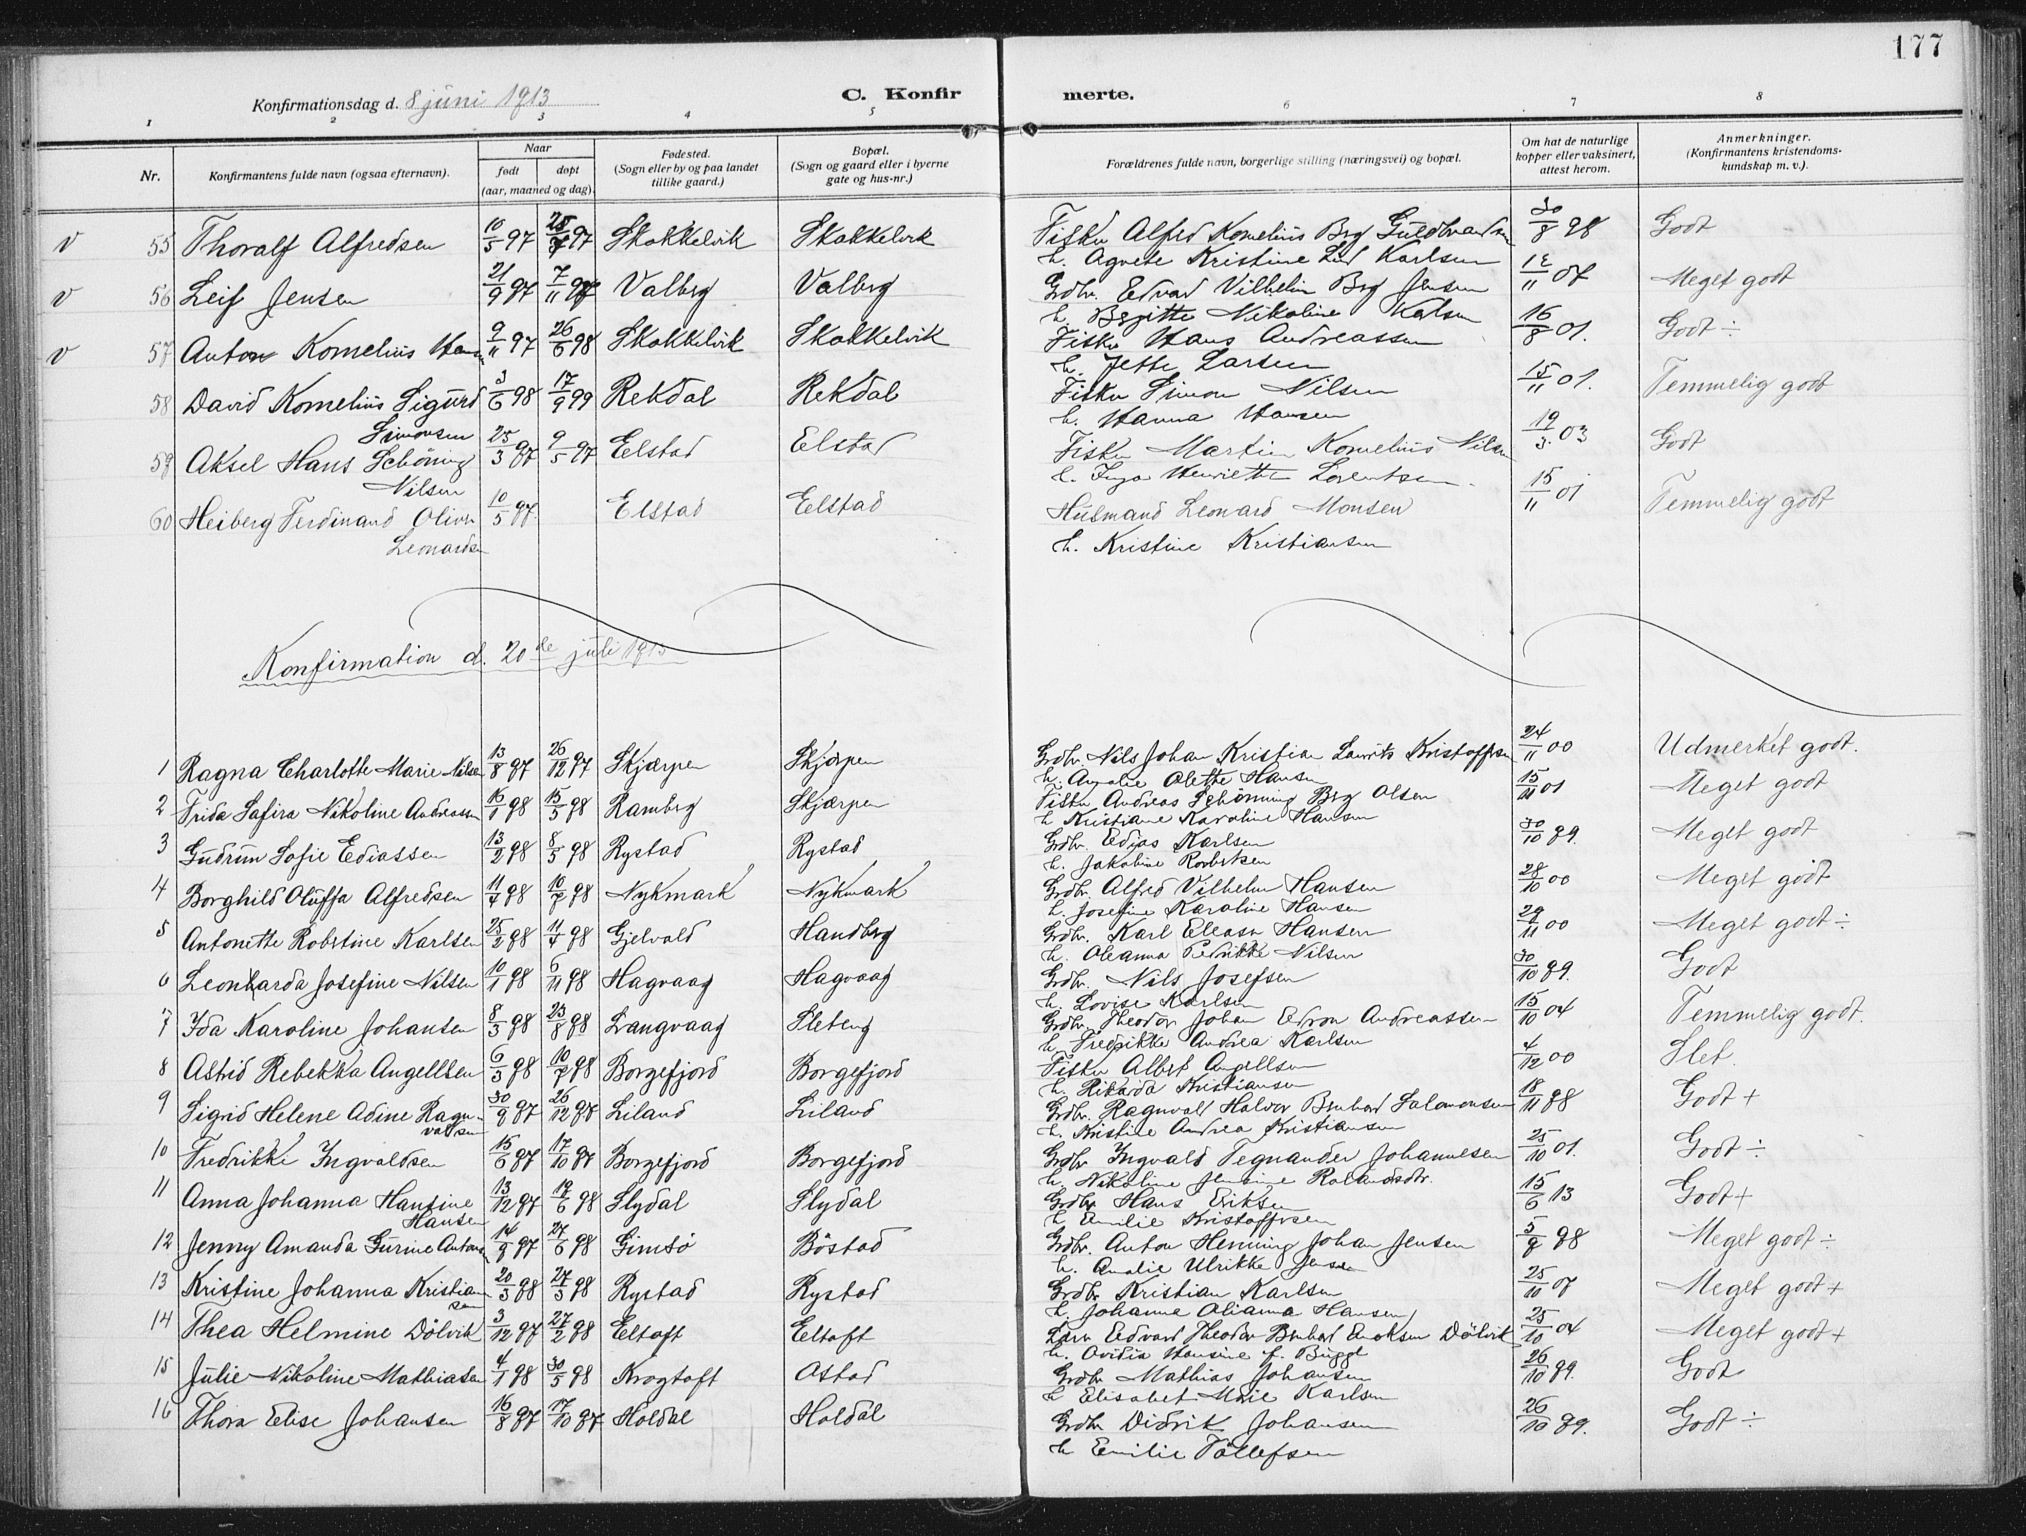 177
Konfirmationsdag d. 8 juni 1913
C. Konfir
merte.
1 2 3 4 5 6 7 8
Nr.
Konfirmantens fulde navn (ogsaa efternavn).
Naar
født døpt
(aar, maaned og dag).
Fødested.
(Sogn eller by og paa landet
tillike gaard.)
Bopæl.
(Sogn og gaard eller i byerne
gate og hus-nr.)
Forældrenes fulde navn, borgerlige stilling (næringsvei) og bopæl.
Om hat de naturlige
kopper eller vaksinert,
attest herom.
Anmerkninger.
(Konfirmantens kristendoms-
kundskap m. v.).
v 55 Thoralf Alfredsen 10/5 97 97 Skokkelvik Skokkelvik Fisker Alfred Kornelius Brg Guldbrandsen 30/8 98 Godt
h. Agnete Kristine Karlsen
v 56 Leif Jensen 21/9 97 7/11 97 Valberg Valberg Grdbr. Edvard Vilhelm Brg Jensen 07 Meget godt
h. Bergitte Nikoline Karlsen
v 57 Anton Kornelius Hansen 9/11 97 26/6 98 Skokkelvik Skokkelvik Fisker Hans Andreassen 16/8 01. Godt ÷
h. Jette Larsen
58 David Kornelius Sigurd 3/6 98 17/9 99 Rekdal Rekdal Fisker Simon Nilsen 15/11 01. Temmelig godt
Simonsen h. Hanna Hansen
59 Aksel Hans Schöning 25/3 97 9/5 97 Elstad Elstad Fisker Martin Kornelius Nilsen 19/3 03 Godt
Nilsen h. Inga Henriette Lorentsen
60 Heiberg Ferdinand Oliver 10/5 97. Elstad Elstad Husmand Leonard Monsen 15/11 01 Temmelig godt
Leonardsen h. Kristine Kristiansen
Konfirmation d. 20de juli 1913
1 Ragna Charlotte Marie Nilsen 13/8 97 26/12 97 Skjærpen Skjærpen Grdbr. Nils Johan Kristian Laurits Kristoffersen 24/11 00 Udmerket godt.
h. Amalie Olette Hansen
2 Frida Safira Nikoline Andreassen 16/1 98 15/5 98 Ramberg Skjærpen Fisker Andreas Schönning Brg Olsen 15/11 01 Meget godt
h Kristiane Karoline Hansen
3 Gudrun Sofie Ediassen 13/2 98 8/5 98 Rystad Rystad Grdbr. Edias Karlsen 30/10 99. Meget godt
h. Jakobine Robertsen
4 Borghild Oluffa Alfredsen 11/4 98 10/7 98 Nykmark Nykmark Grdbr Alfred Vilhelm Hansen 28/10 00 Meget godt
h. Josefine Karoline Hansen
5 Antonette Robertine Karlsen 25/2 98 11/4 98 Gjelvold Handberg Grdbr. Karl Eleasar Hansen 29/11 00 Meget godt ÷
h. Oleanna Pedrikke Nilsen
6 Leonharda Josefine Nilsen 10/1 98 6/11 98 Hagvaag Hagvaag Grdbr. Nils Josefsen 30/10 99. Godt
h. Lovise Karlsen
7 Ida Karoline Johansen 8/3 98 23/8 98 Langvaag Sleteng Grdbr. Theodor Johan Edvon Andreassen 15/10 04 Temmelig godt.
h. Fredrikke Andrea Karlsen
8 Astrid Rebekka Angellsen 6/3 98 10/7 98 Borgefjord Borgefjord Fisker Albert Angellsen 4/12 00 Slet.
h. Rikarda Kristiansen
9 Sigrid Helene Adine Ragn- 30/9 97 26/12 97 Liland Liland Grdbr. Ragnvald Halvor Bernhard Salomonsen 18/11 98 Godt +
valdsen h. Kristine Andrea Kristiansen
10 Fredrikke Ingvaldsen 15/6 97 17/10 97 Borgefjord Borgefjord Grdbr Ingvald Tegnander Johannesen 25/10 01. Godt ÷
h. Nikoline Jensine Rolandsdtr.
11 Anna Johanna Hansine 13/12 97 19/6 98 Slydal Slydal Grdbr Hans Eriksen 15/6 13 Godt +
Hansen h Emilie Kristoffersen
12 Jenny Amanda Gurine Antonsen 14/9 97 27/6 98 Gimsö Böstad Grdbr. Anton Henning Johan Jensen 5/9 98 Meget godt ÷
h. Amalie Ulrikke Jensen
13 Kristine Johanna Kristian 20/3 98 27/3 98 Rystad Rystad Grdbr Kristian Karlsen 25/10 07 Meget godt +
sen h. Johanna Olianna Hansen
14 Thea Helmine Dölvik 3/12 97 27/2 98 Eltoft Eltoft Lærer Edvard Theodor Bernhard Enoksen Dölvik 25/10 04 Meget godt +
h. Ovidia Hansine f. Bügge
15 Julie Nikoline Mathiasen 4/1 98 30/5 98 Krogtoft Ostad Grdbr Mathias Johansen 26/10 99. Godt
h Elisabet Marie Karlsen
16 Thora Elise Johansen 16/8 97 17/10 97 Holdal Holdal Grdbr Didrik Johansen 26/10 99. Godt ÷
h Emilie Tollefsen